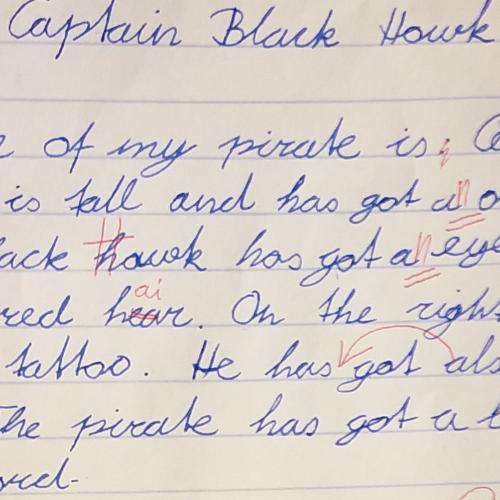 Captain Black Howk
of my pirate is
is tall and has got an
howk has got an eye
red hair. On the right
tattoo. He has got als
The pirate has got a